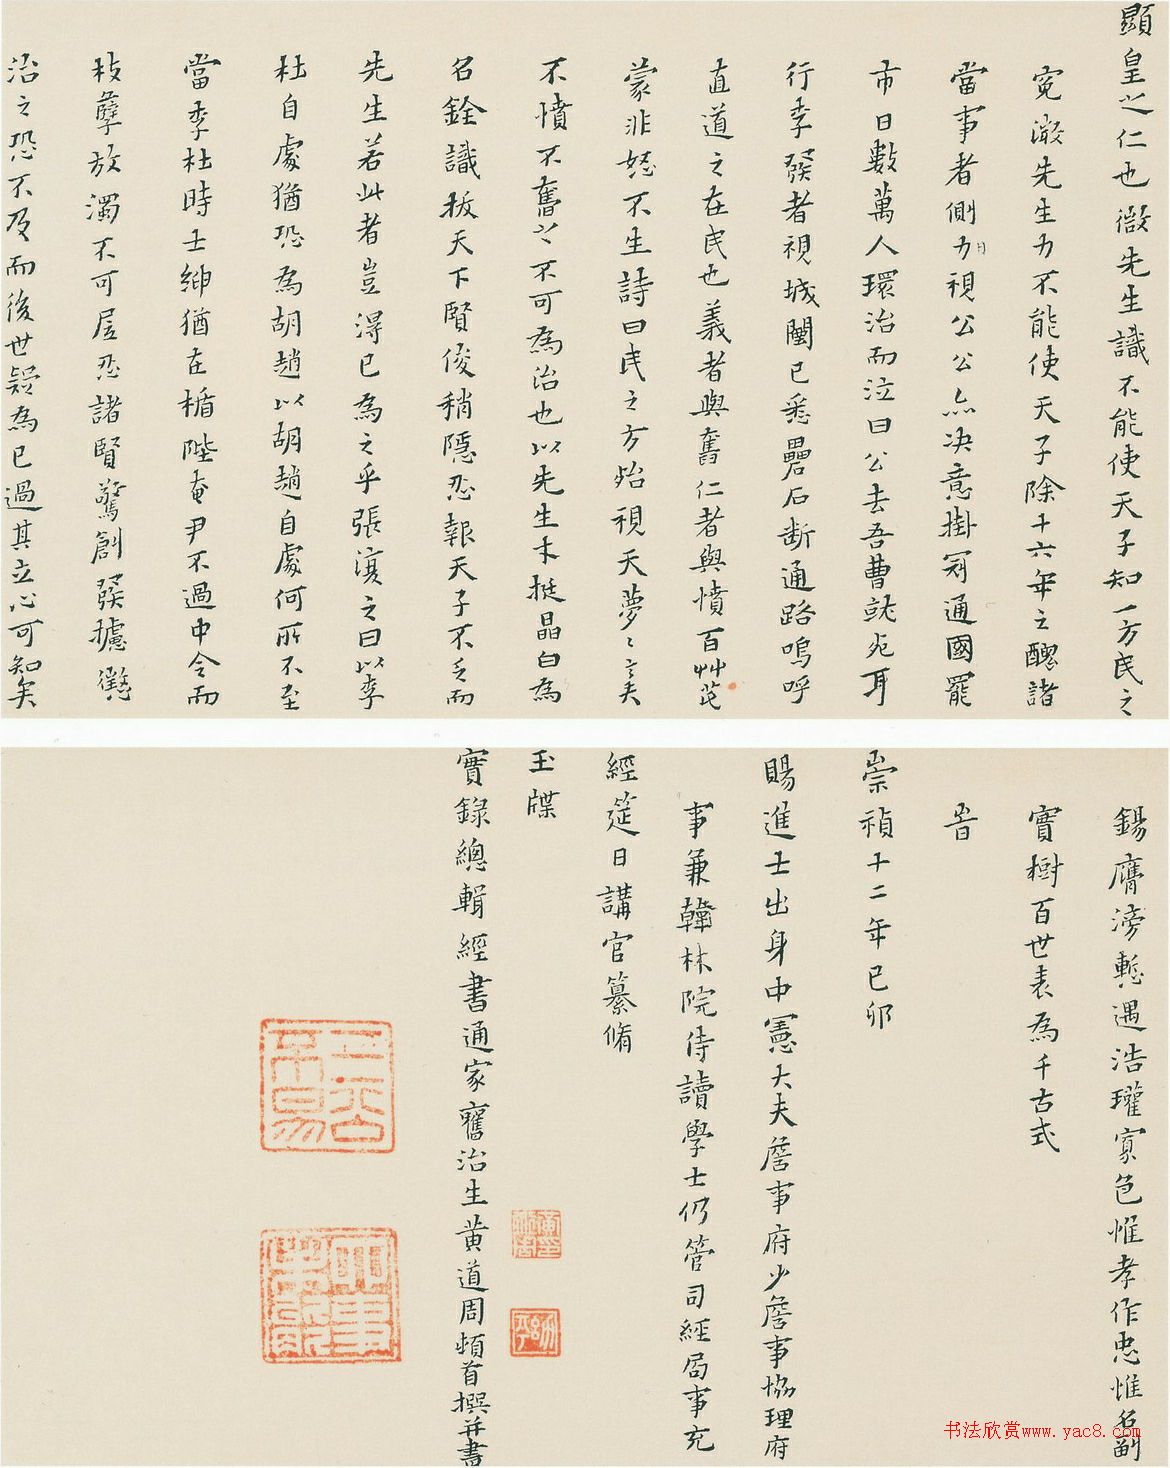 顯皇之仁也微先生識不能使天子知一方民之
冤澂先生力不能使天子除十六年之醜諸
當事者側力視公公亦决意掛冠通國罷
日
市日數萬人環治而泣曰公去吾曹就死耳
行李發者視城闉已悉壘石斷通路嗚呼
直道之在民也義者與奮仁者與憤百艸茈
蒙非怒不生詩曰民之方殆視天夢夢言天
不憤不奮之不可為治也以先生木挺晶白為
名銓識拔天下賢俊稍隱忍報天子不乏而
先生若此者豈淂已為之乎張湏之曰以李
杜自處猶恐為胡趙以胡趙自處何所不至
當李杜時士紳猶在楯陛奄尹不過中令而
枝孽放濁不可居忍諸賢驚創發攄懲
治之恐不及而後世疑為已過其立心可知矣
錫膺滂慙遇浩瓘寞色惟孝作忠惟名副
實樹百世表為千古式
旹
崇禎十二年己卯
賜進士出身中憲大夫詹事府少詹事協理府
事兼翰林院侍讀學士仍管司經局事充
經筵日講官纂脩
玉牒
實錄總輯經書通家舊治生黄道周頓首撰并書
书法欣赏www.yac8.com